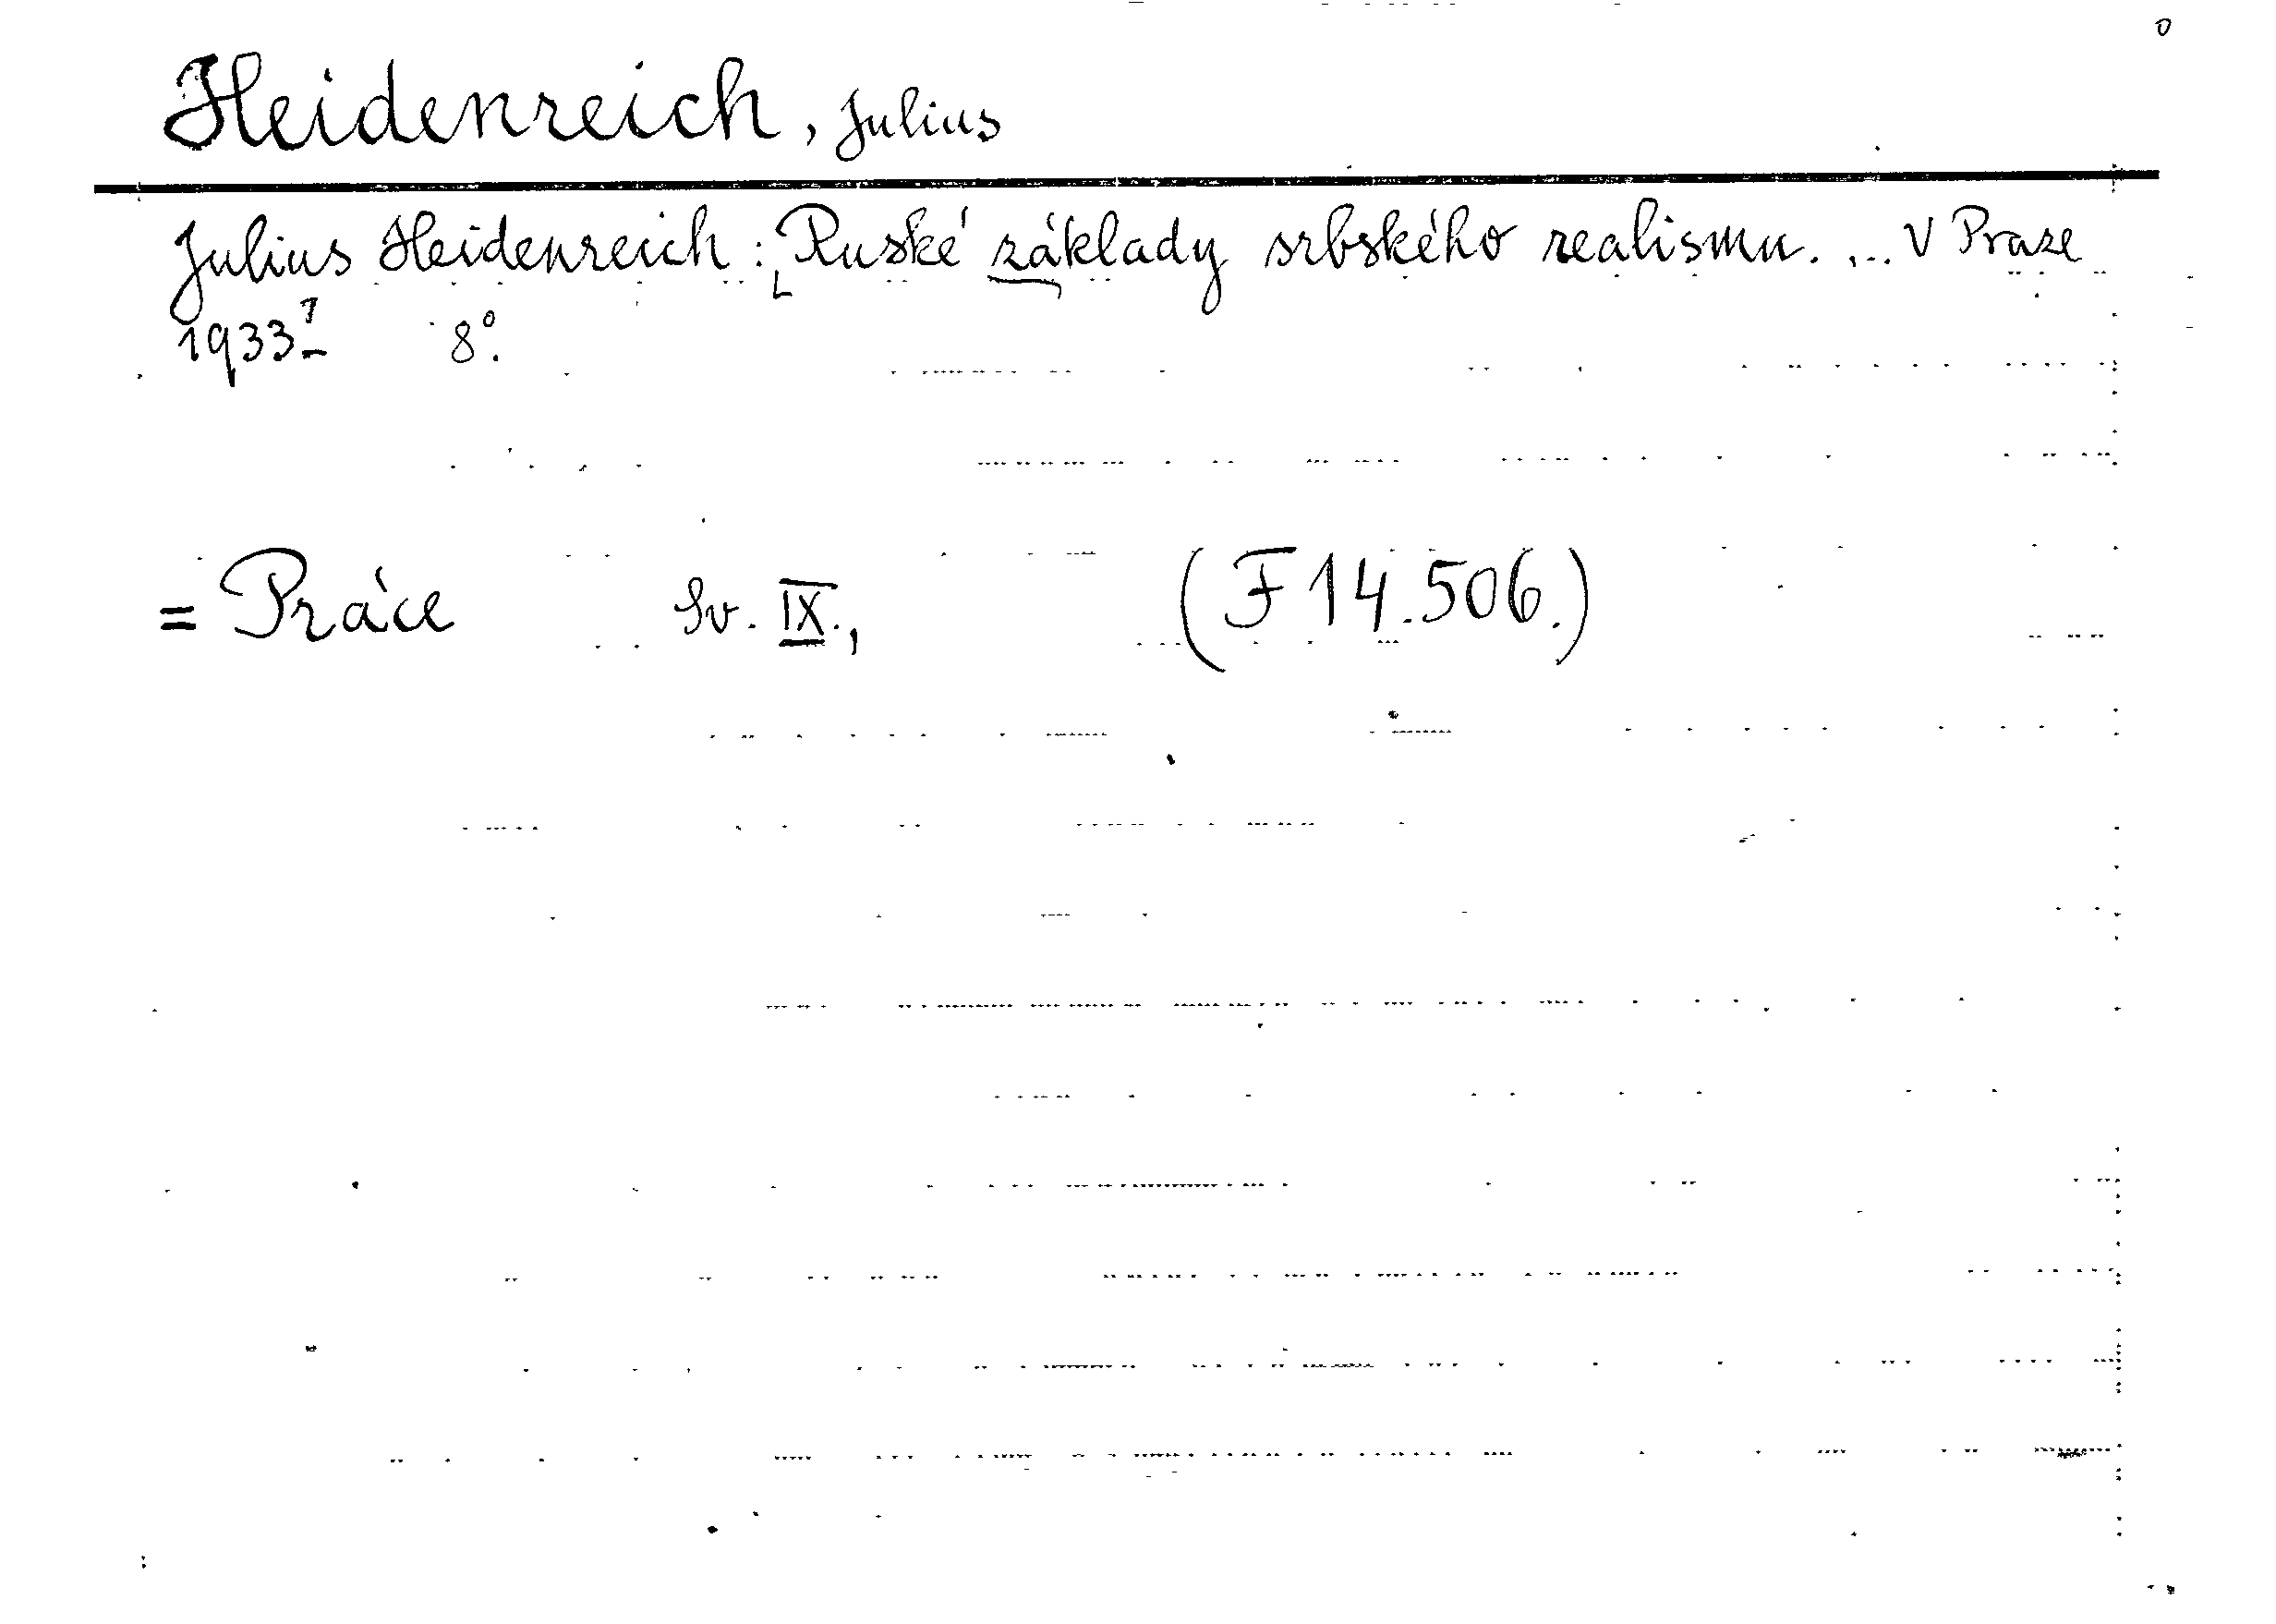 Heidenreich, Julius
Julius Heidenreich: [Ruské základy srbského realismu. ... V Praze
1933.] 8°.
= Práce Sv. IX., (F 14.506.)